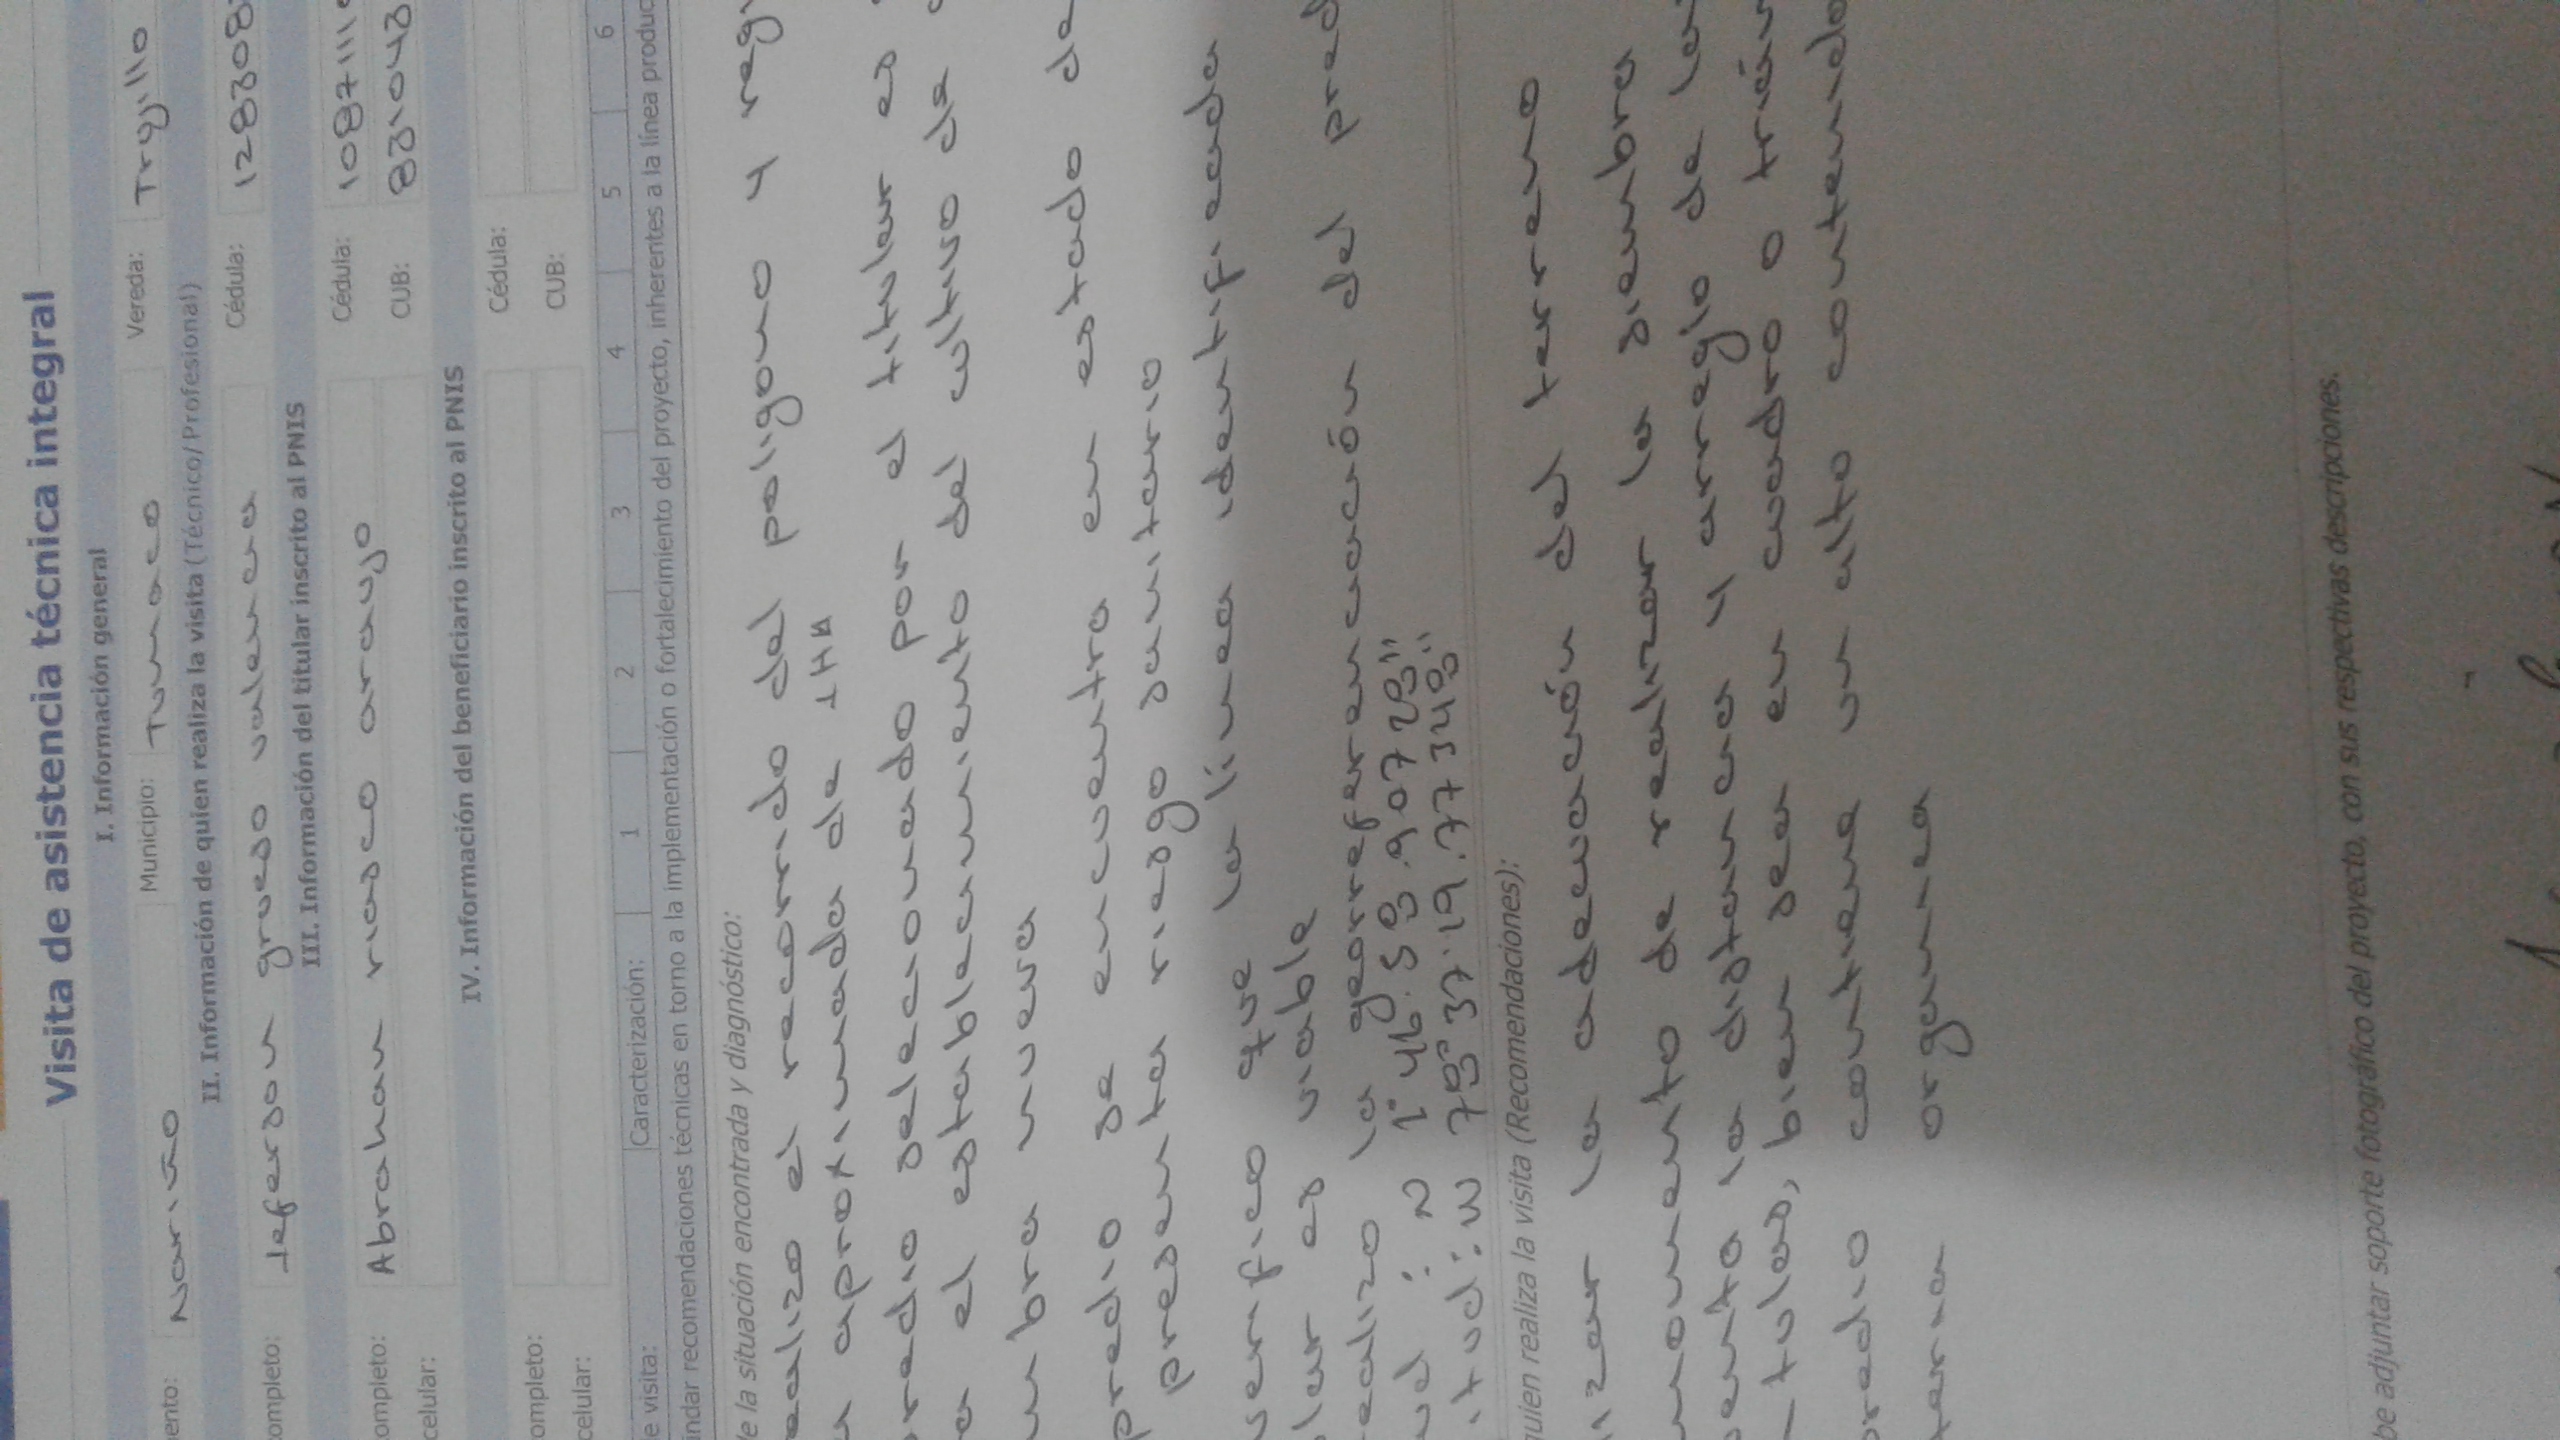 Visita de asistencia técnica integral
I. Información general
ento: Nariño Municipio: Tumaco Vereda: Trujillo
II. Información de quien realiza la visita (Técnico/ Profesional)
completo: Jeferson grueso valencia Cédula: 128308
III. Información del titular inscrito al PNIS
ompleto: Abrahan riasco araujo Cédula: 1087111
celular: CUB: 831043
IV. Información del beneficiario inscrito al PNIS
ompleto: Cédula:
celular: CUB:
e visita: Caracterización: 1 2 3 4 5 6
indar recomendaciones técnicas en torno a la implementación o fortalecimiento del proyecto, inherentes a la línea produc
e la situación encontrada y diagnóstico:
ealizo el recorrido del poligono y reg
u aproximada de 1HA
redio selecionado por el titular es
a el establecimiento del cultivo de
mbra nueva
predio se encuentra en estado de
presenta riesgo sanitario
verifico que la línea identificada
lar es viable
ealizo la georreferenciación del pred
ud: N 1° 46. 58. 90728"
itud: W 78° 37. 19. 77348"
quien realiza la visita (Recomendaciones):
izar la adecuación del terreno
momento de realizar la siembra
enta la distancia y arreglo de la
tulas, bien sea en cuadro o trián
predio contiene un alto contenido
teria organica
be adjuntar soporte fotográfico del proyecto, con sus respectivas descripciones.